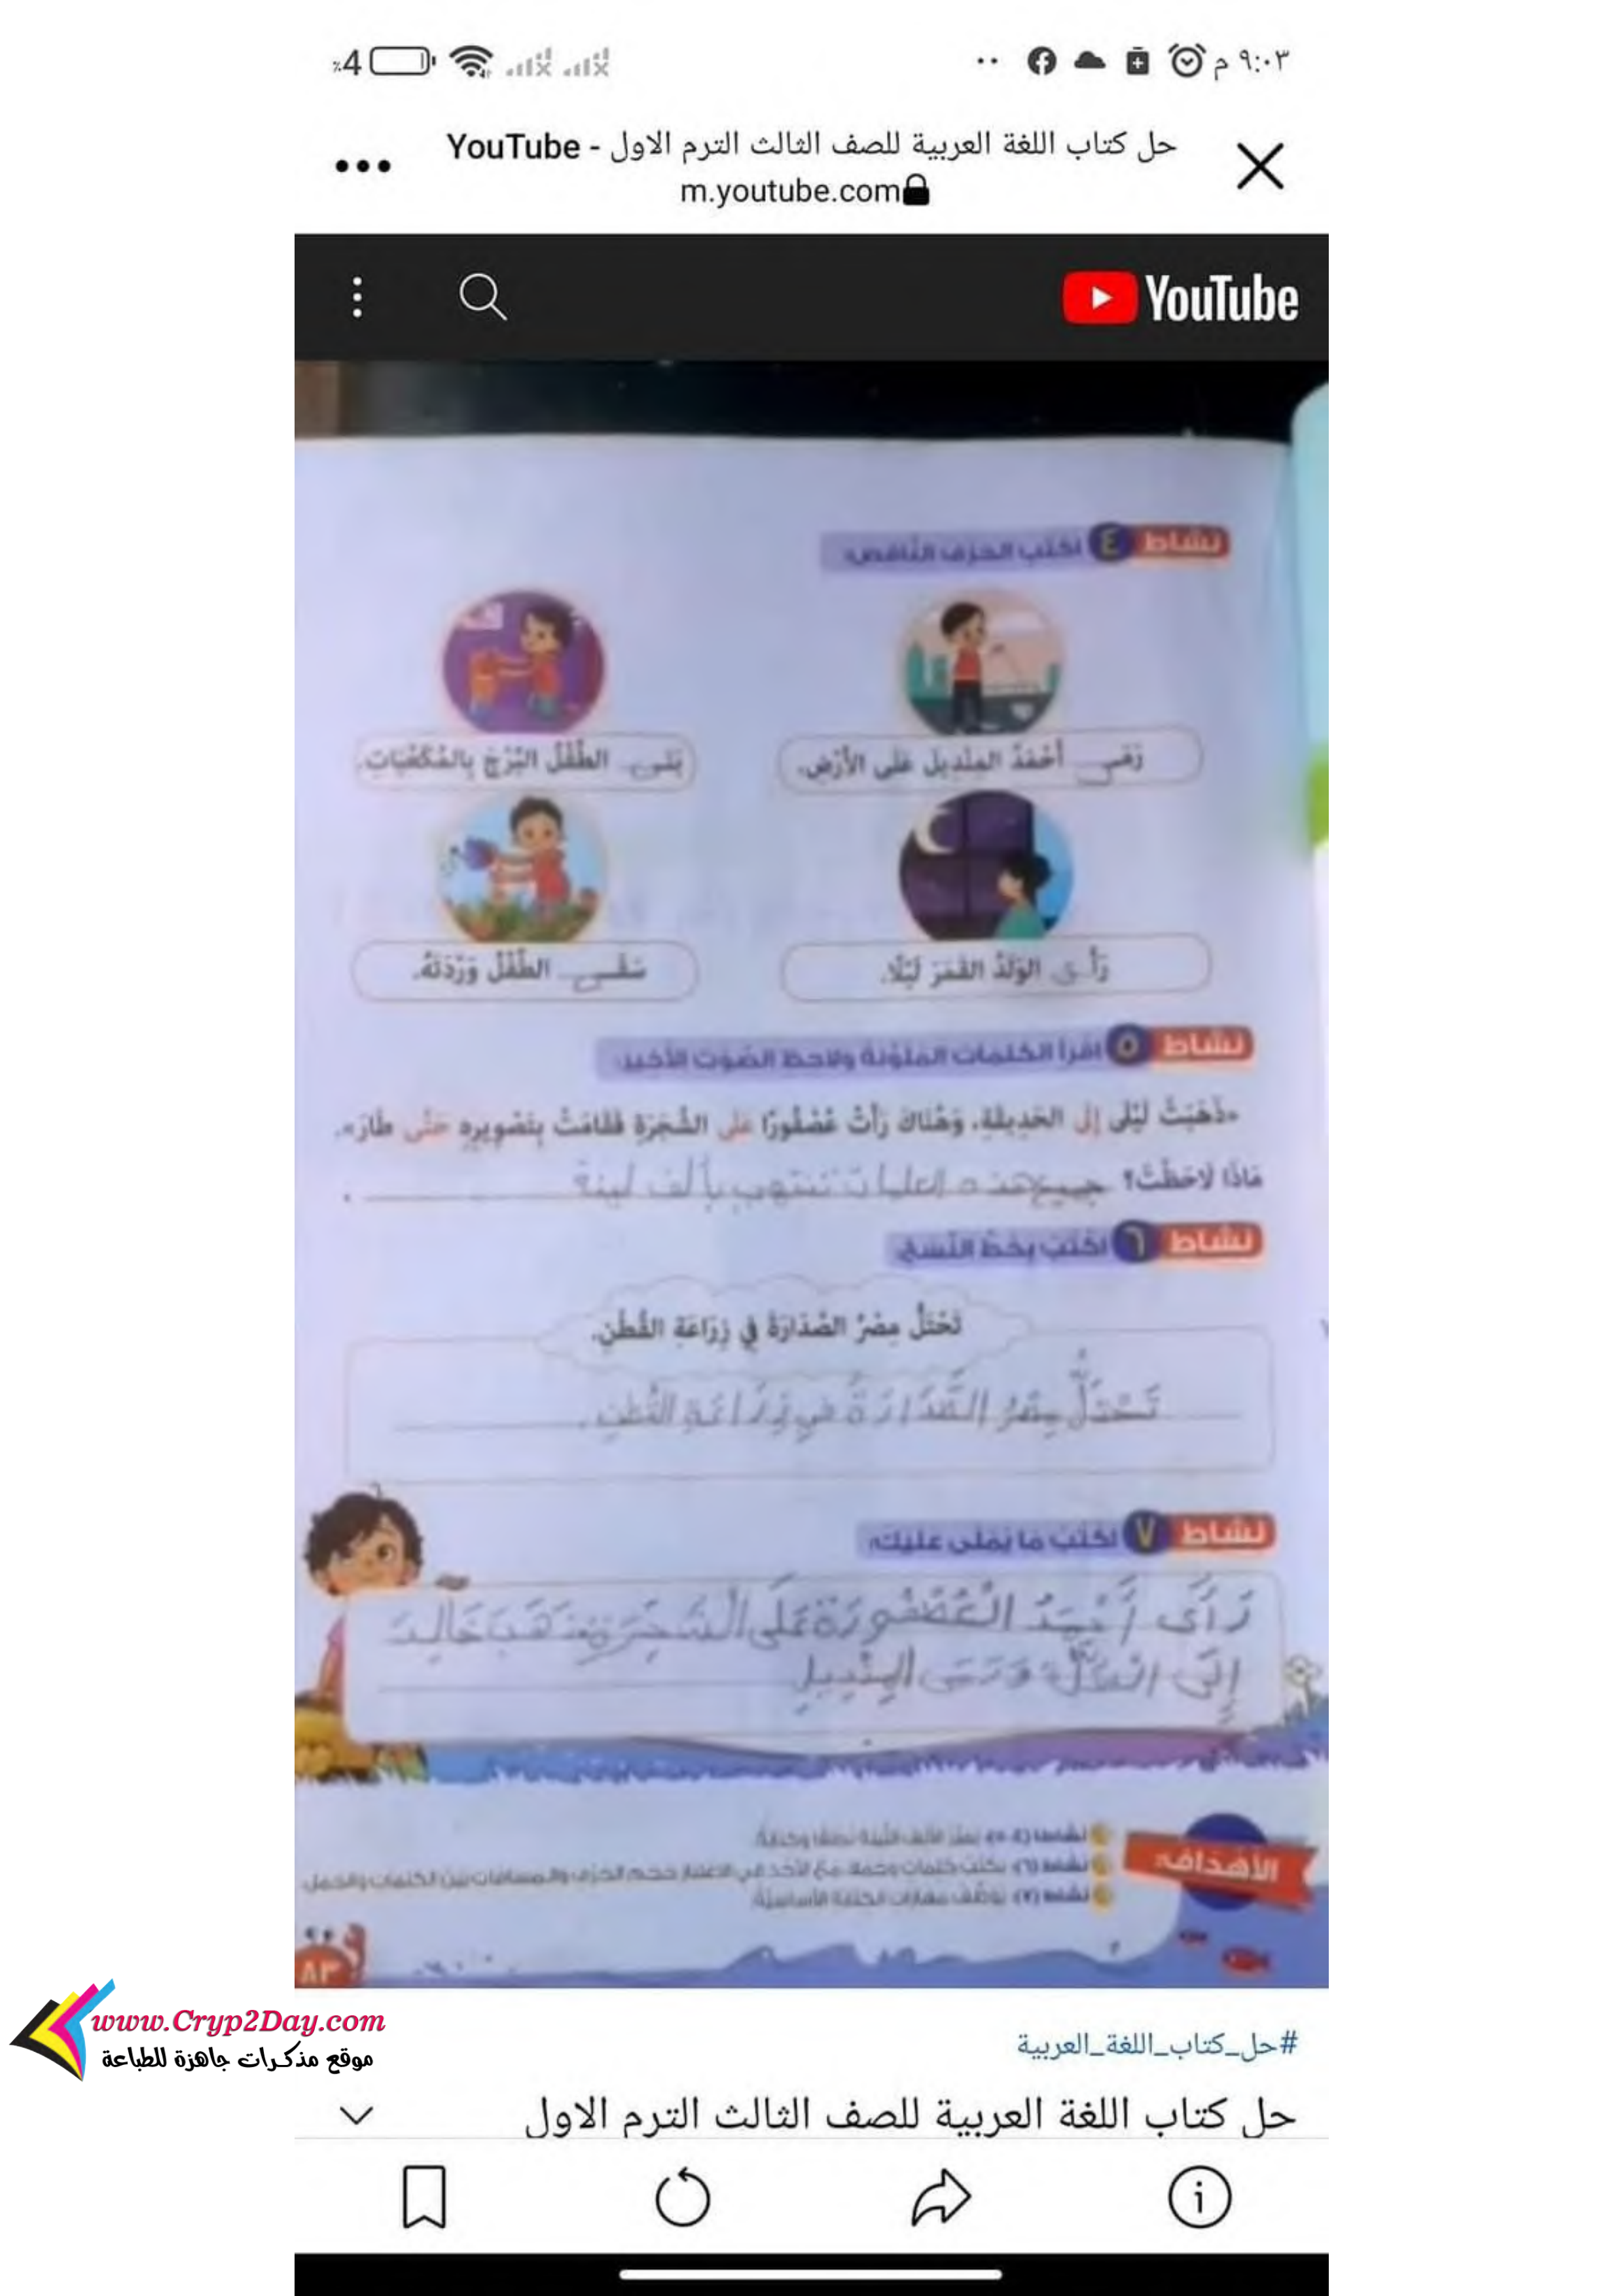 ٩:٠٣ م
٪4
حل كتاب اللغة العربية للصف الثالث الترم الاول - YouTube
m.youtube.com
YouTube
نشاط ٤ اكتب الحرف الناقص:
رَمَى أَحْمَدُ المِنْدِيلَ عَلَى الأَرْضِ.
بَنَى الطِّفْلُ البُرْجَ بِالمُكَعَّبَاتِ.
رَأَى الوَلَدُ القَمَرَ لَيْلًا.
سَقَى الطِّفْلُ وَرْدَتَهُ.
نشاط ٥ اقرأ الكلمات الملونة ولاحظ الصوت الأخير:
«ذَهَبَتْ لَيْلَى إِلَى الحَدِيقَةِ، وَهُنَاكَ رَأَتْ عُصْفُورًا عَلَى الشَّجَرَةِ فَقَامَتْ بِتَصْوِيرِهِ حَتَّى طَارَ».
مَاذَا لَاحَظْتَ؟ جميع هذه الكلمات تنتهي بألف لينة
نشاط ٦ اكتب بخط النسخ:
تَحْتَلُّ مِصْرُ الصَّدَارَةَ فِي زِرَاعَةِ القُطْنِ.
تَحْتَلُّ مِصْرُ الصَّدَارَةَ فِي زِرَاعَةِ القُطْنِ.
نشاط ٧ اكتب ما يملى عليك:
رَأَى أَحْمَدُ الْعُصْفُورَةَ عَلَى الْشَجَرَةِ ذَهَبَ خَالِد
إِلَى وَرَمَى
الأهداف:
نشاط (٤، ٥): يميز الألف اللينة نطقًا وكتابةً.
نشاط (٦): يكتب كلمات وجملًا مع الأخذ في الاعتبار حجم الحرف والمسافات بين الكلمات والجمل.
نشاط (٧): يوظف مهارات الكتابة الأساسية.
٨٣
www.Cryp2Day.com
موقع مذكرات جاهزة للطباعة
#حل_كتاب_اللغة_العربية
حل كتاب اللغة العربية للصف الثالث الترم الاول